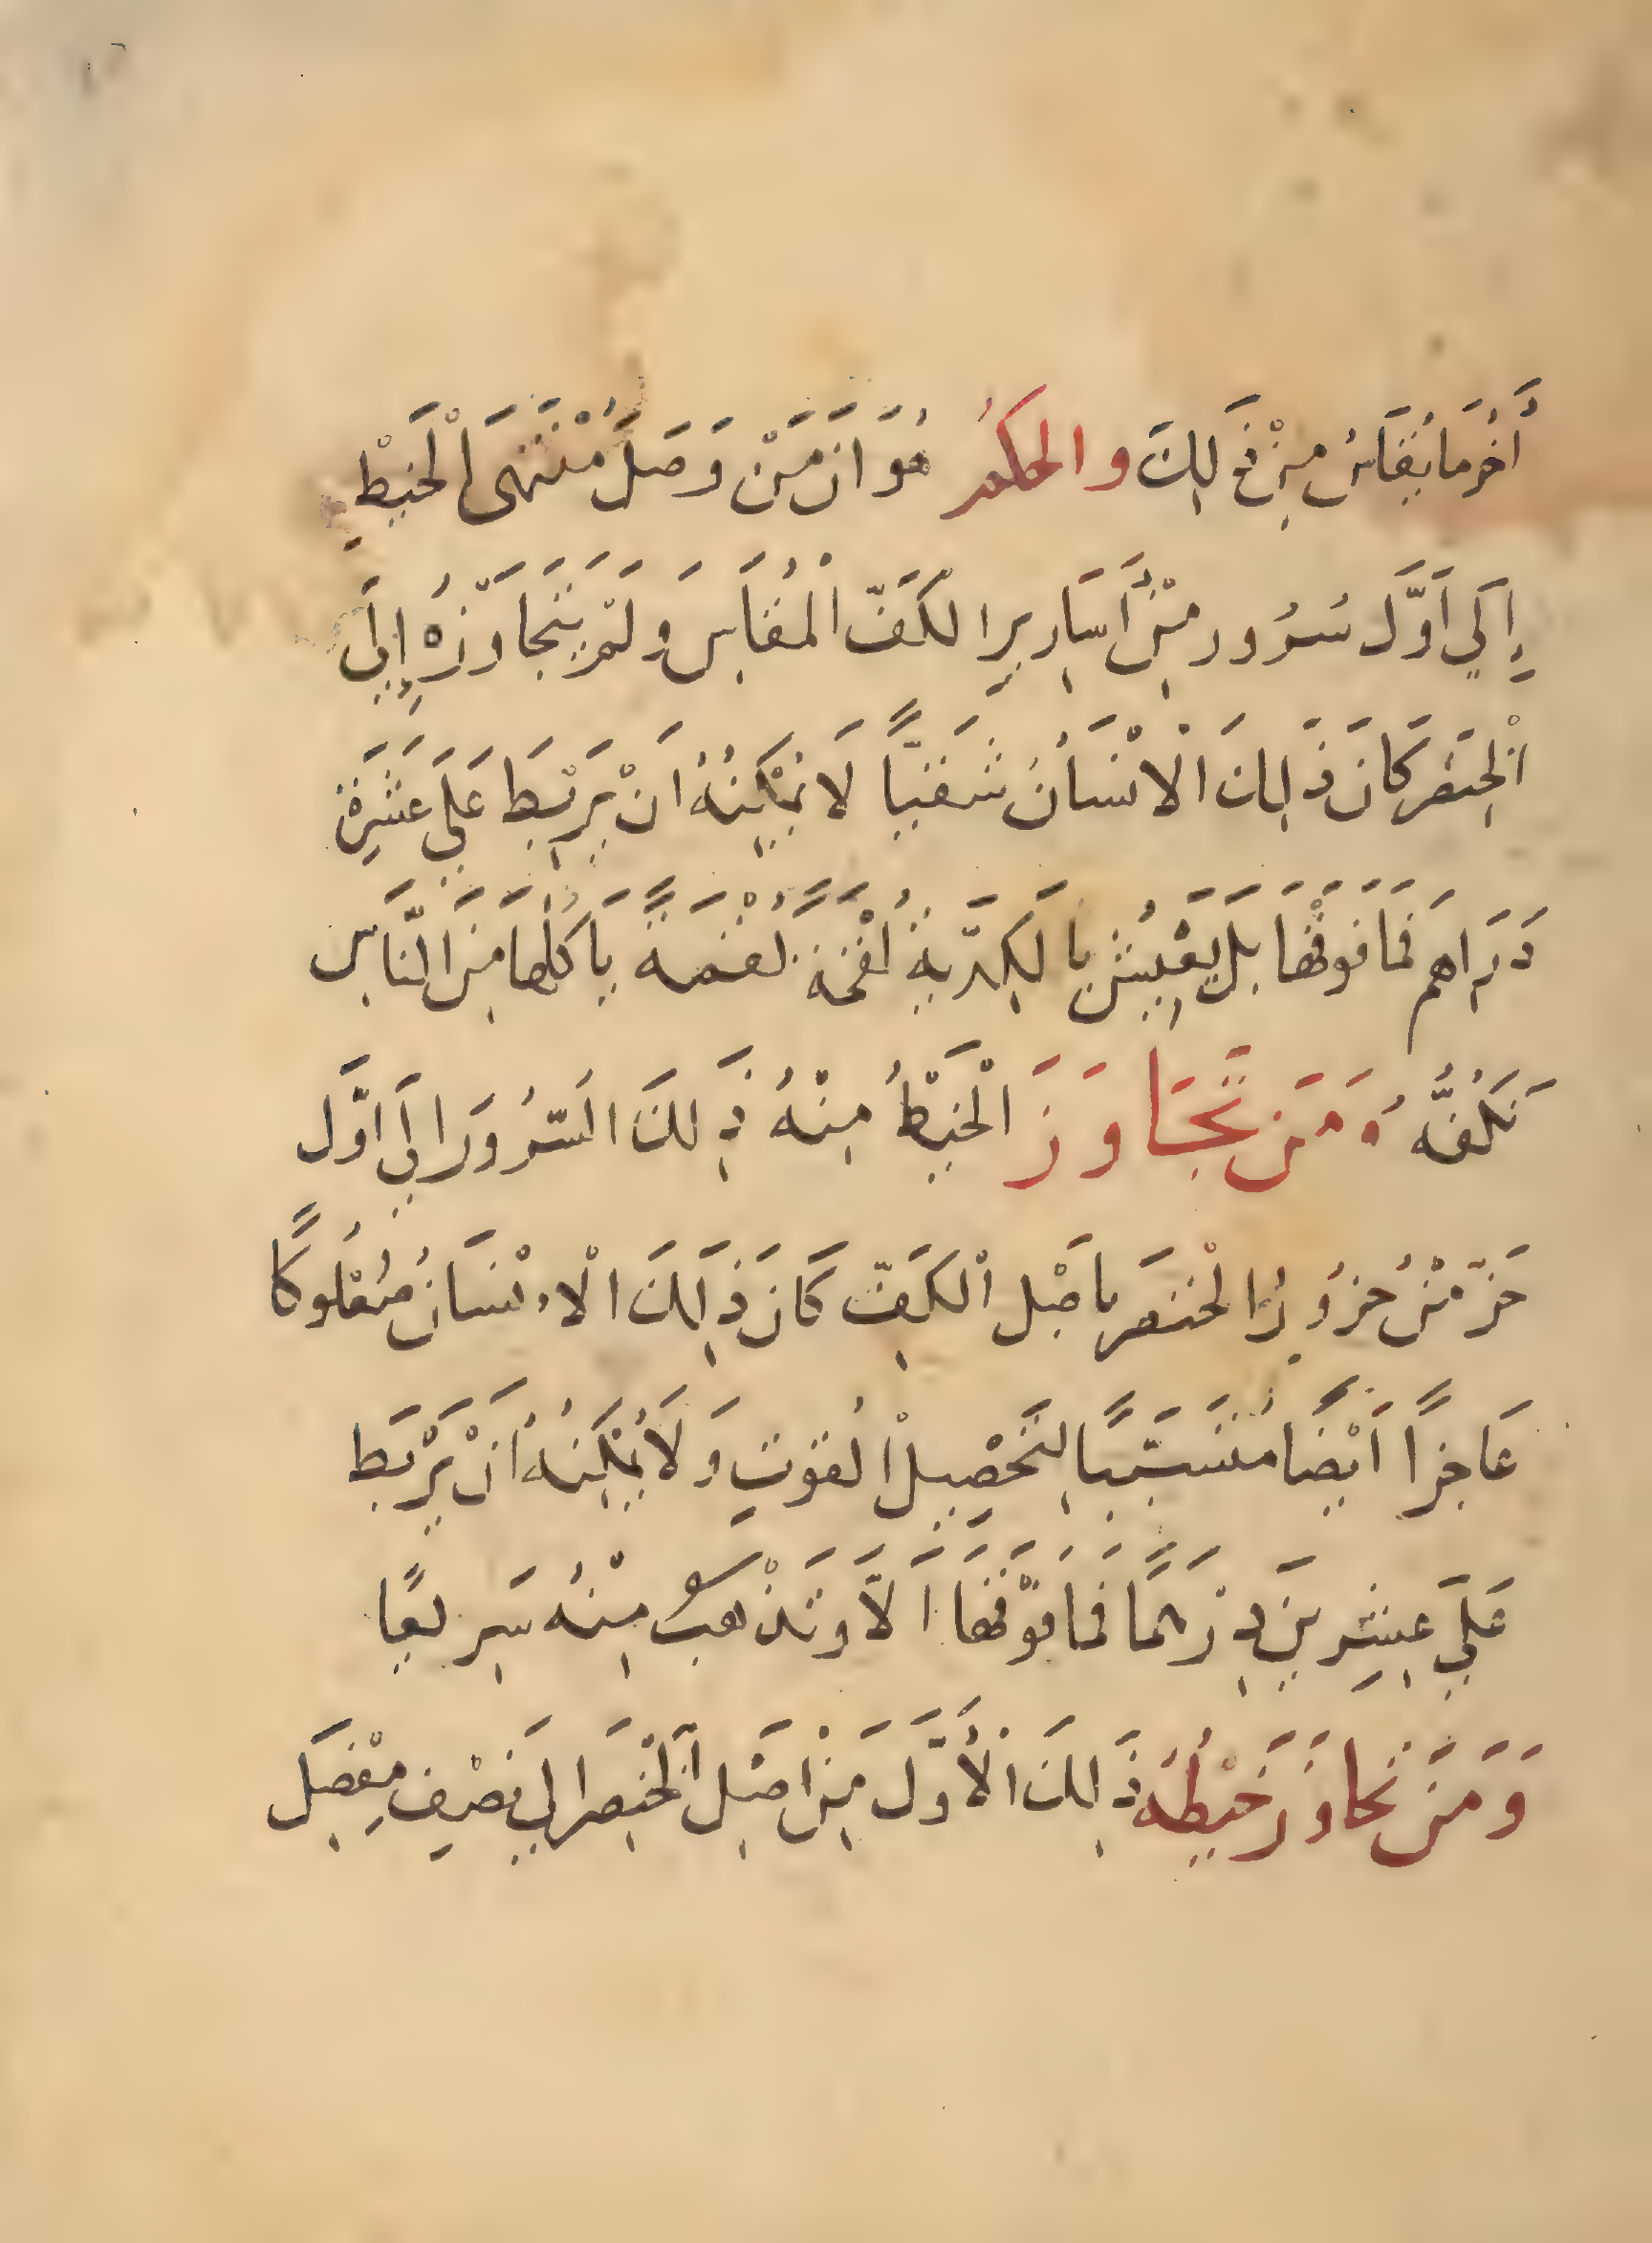 أَخُرَ مَا يُقَاسُ مِنْ ذَلِكَ والحكمُ هُوَ اَنَ مَنْ وَصَلَ مُنْتَهَى الْخَيْطِ
إِلَي اَوَّل سُرُور مِنْ أَسَارِيرِ الكَفّ الْمُقَاسِ وَلَمْ يَتَجَاوَزْهُ إِلَى
الْخِنصَر كَانَ ذَلِكَ الْاِنْسَانُ شَقِيًّا لَا يُمْكِنُهُ اَنْ يَرْبِطَ عَلَي عَشَرَةِ
دَرَاهم فَمَا فَوْقَهَا بَلْ يَعِيْشُ بِالكِدّيَةِ لُقْمَةً لُقْمَةً يَاكُلُهَا مِنَ النَّاسِ
تَكُفُّهُ وَمَن تَجَاوَزَ الْخَيْطُ مِنْهُ ذَلِكَ السّرُورَ اِلَي اَوَّل
حَزّ مِنْ حُزُوزِ الخنصَر بِاَصْل الْكَفّ كَانَ ذَلِكَ الْاِنْسَانُ صُعْلُوكًا
عَاجِزًا اَيْضًا مُتَسَبّبًا لِتَحْصِيلْ الْقُوتِ وَلَا يُمْكِنُهُ اَنْ يَرْبَط
عَلَي عِشرِينَ دِرْهَمًا فَمَا فَوْقَهَا اَلَّا وَتَذْهَبُ مِنْهُ سَرِيعًا
وَمَنَ تَجاوَزَ خَيْطُهُ ذَلِكَ الْأَوَّل مِنْ اَصْلِ الْخِنصَر اِلَي نِصْفِ مِفْصَلِ